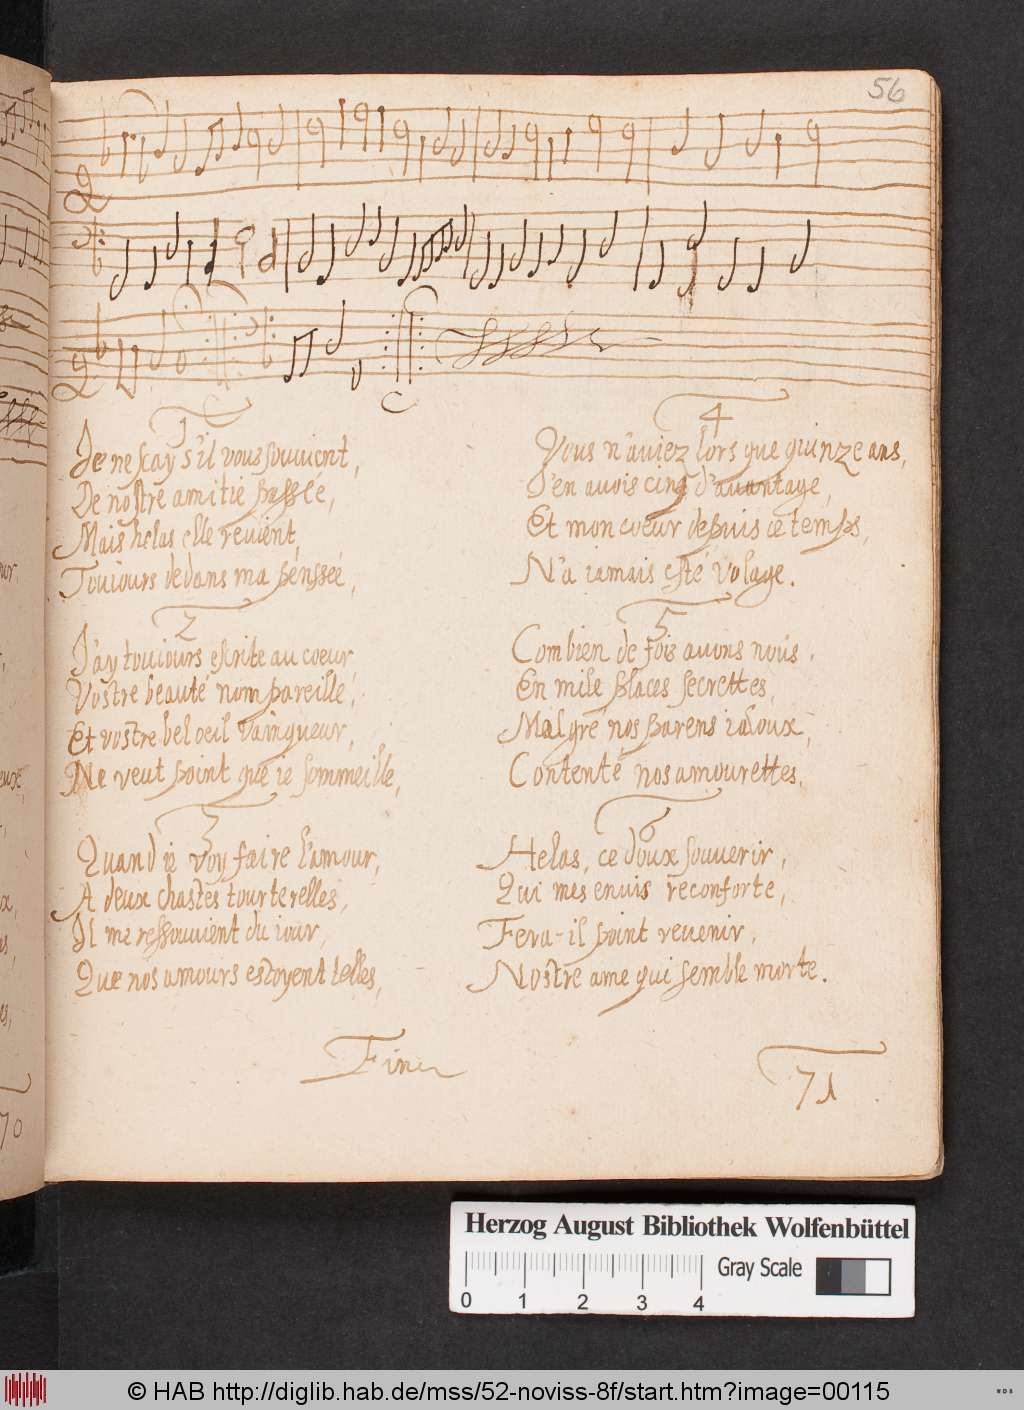 56
1
Je ne scay s'il vous souvient,
De nostre amitié passée,
Mais helas elle revient,
Toujours dedans ma penssée,
2
J'ay toujours escrite au coeur
Vostre beauté nompareille,
Et vostre bel oeil vainqueur,
Ne veut point que je sommeille,
3
Quand je voy faire l'amour,
A deux chastes tourterelles,
Il me ressouvient du jour,
Que nos amours estoyent telles,
4
Vous n'aviez lors que quinze ans,
J'en avois cinq d'avantage,
Et mon coeur depuis ce temps,
N'a jamais esté volage.
5
Combien de fois avons nous,
En mile places secrettes,
Malgre nos parens jaloux,
Contenté nos amourettes,
6
Helas, ce doux souvenir,
Qui mes enuis reconforte,
Fera-il point revenir,
Nostre ame qui semble morte.
Fine
71
70
Herzog August Bibliothek Wolfenbüttel
Gray Scale
0 1 2 3 4
© HAB http://diglib.hab.de/mss/52-noviss-8f/start.htm?image=00115